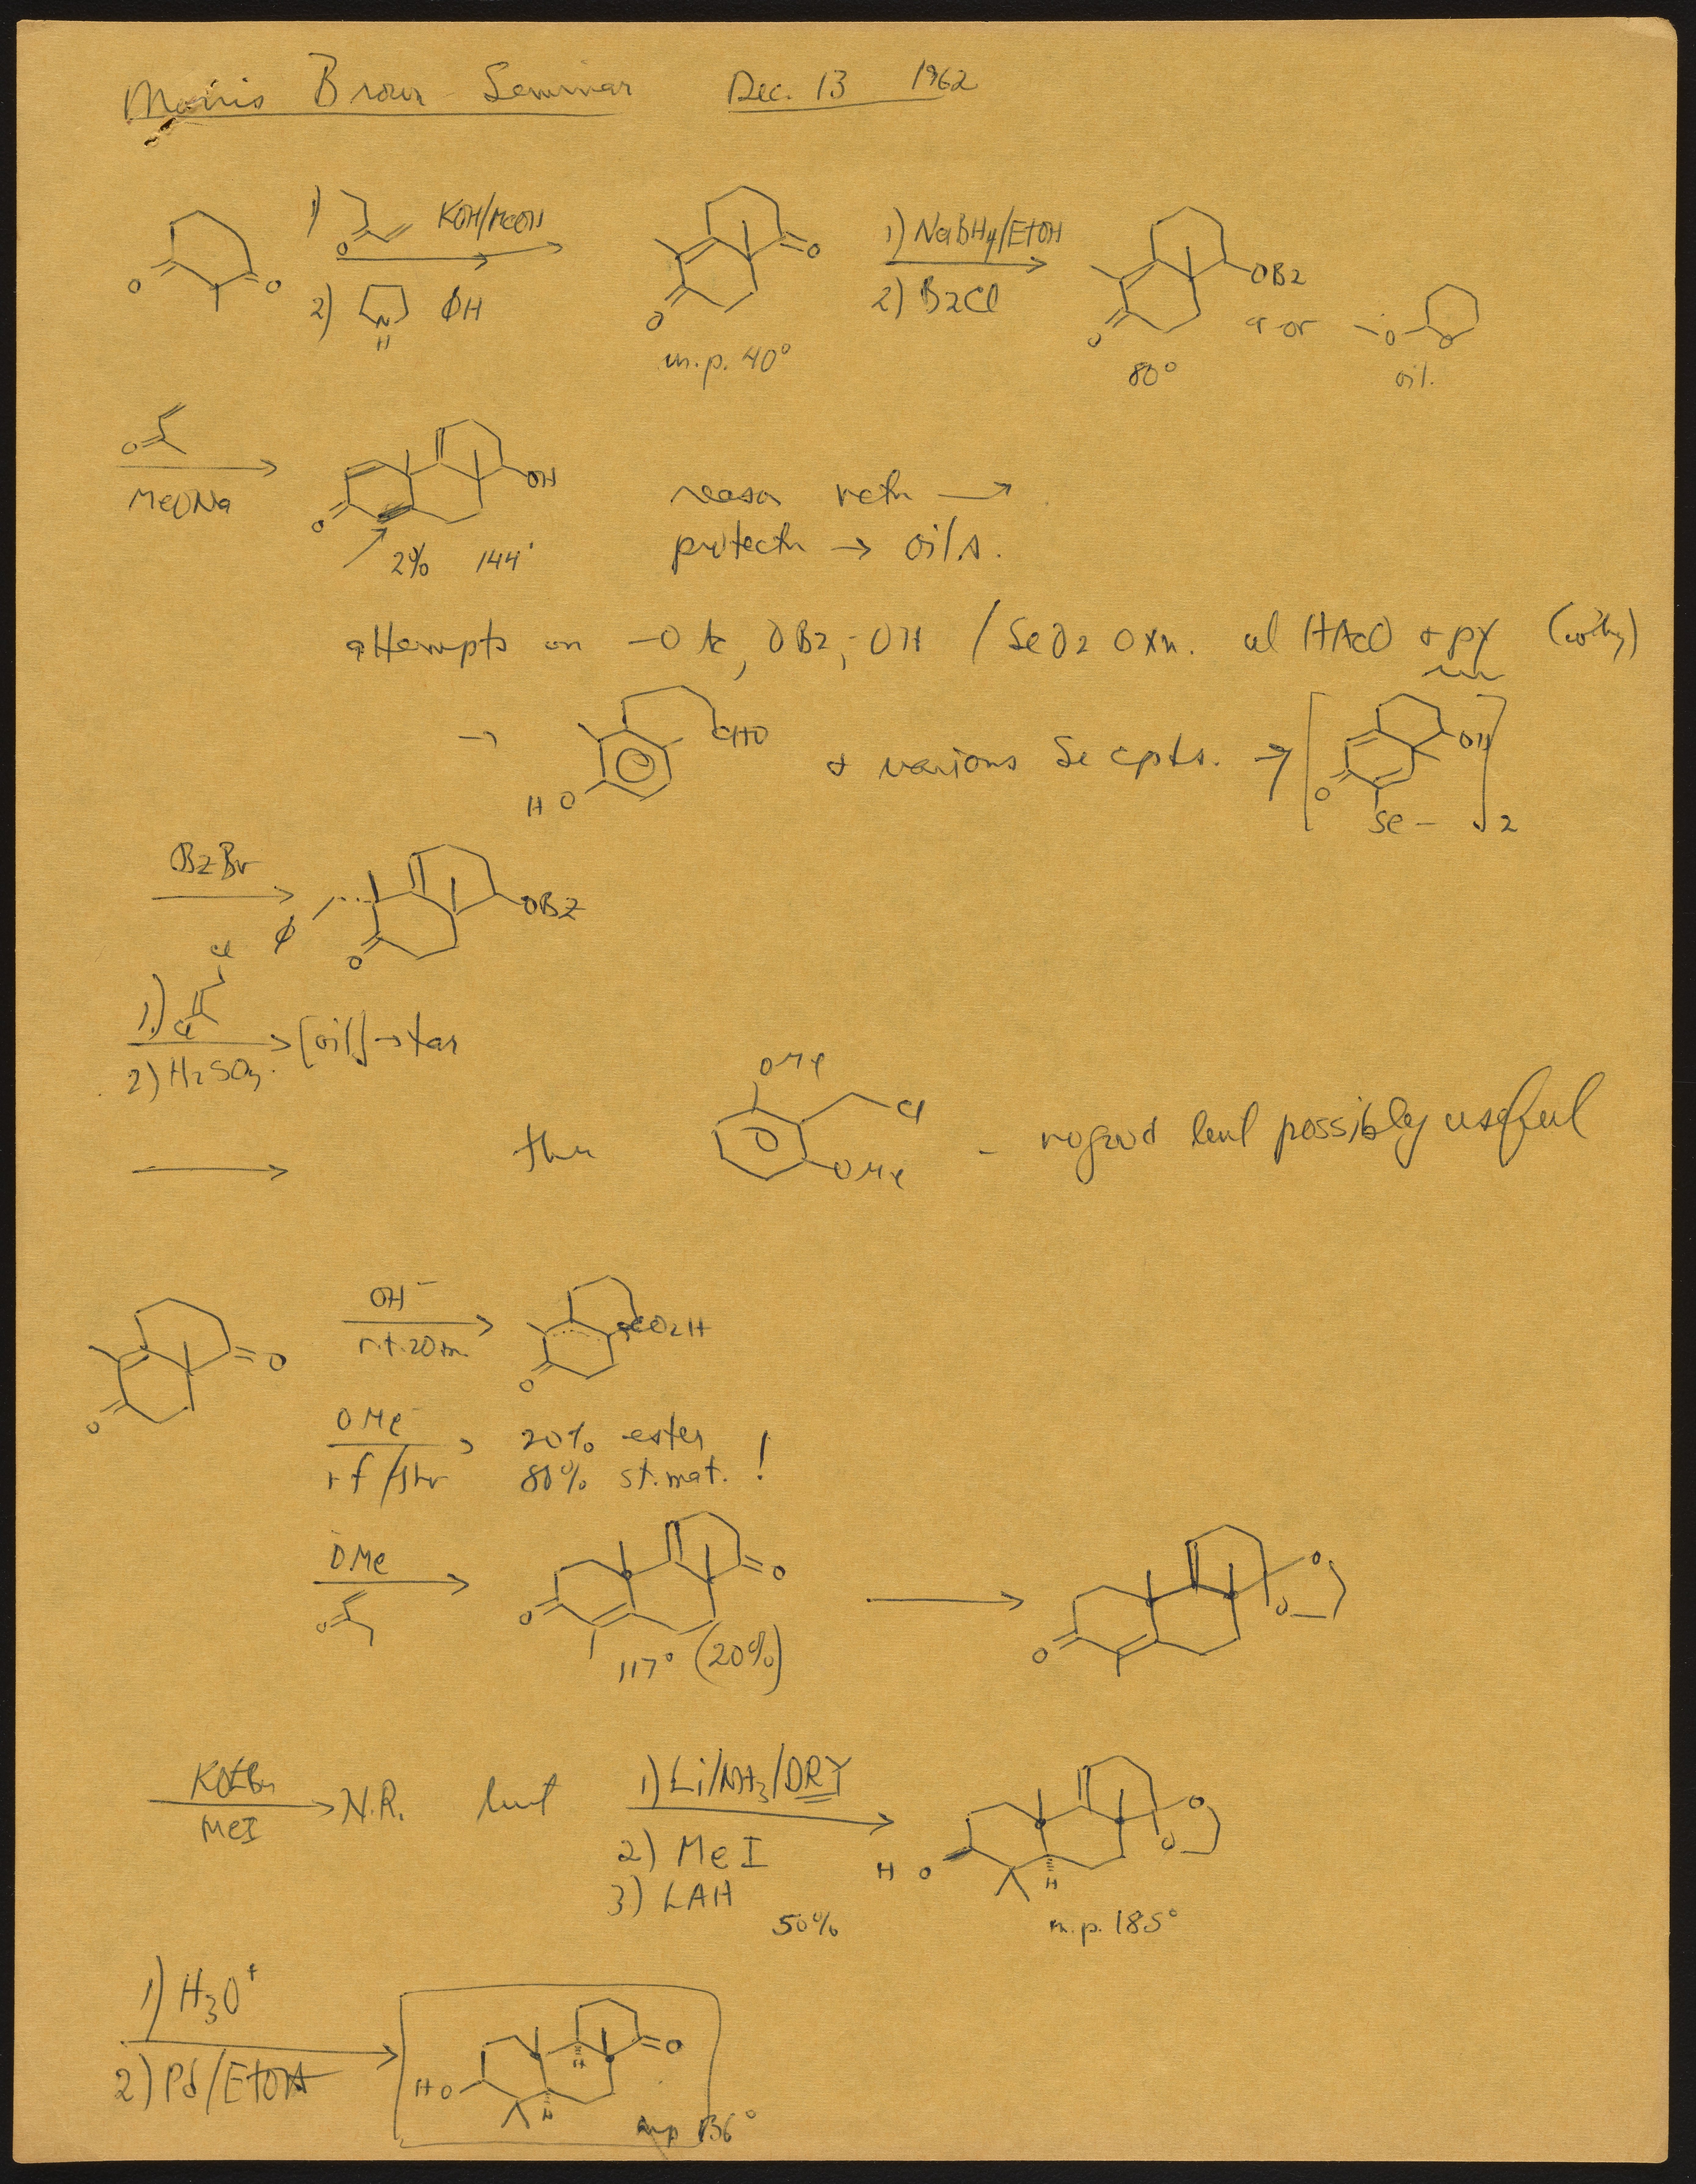 Morris Brown Seminar Dec. 13 1962
1) O KOH/MeOH
O O
2) N H ΦH
O
O
m.p. 40°
1) NaBH4/EtOH
2) BzCl
OBz
O
80°
or
O O
oil.
O
MeONa
O
OH
2% 144°
→
protectn → oils.
attempts on -OAc, OBz, -OH / SeO2 Oxn. HAcO + py
→ CHO
HO
+ various Se cpts. →
[ OH O Se- ]2
BzBr
Φ OBz
O
1) Cl Cl
2) H2SO4 → [oil] → tar
OMe
Cl
OMe
- no good but possibly useful
O
O
OH⁻
r.t. 20m.
CO2H
O
OMe⁻
rf/1hr
20% ester
80% st. mat. !
OMe
O
O
O
117° (20%)
O
O
O
KOtBu
MeI → N.R. but
1) Li/NH3/DRY
2) MeI
3) LAH
50%
HO
H
O
O
m.p. 185°
1) H3O+
2) Pd/EtOH
HO
H
H
O
mp 136°